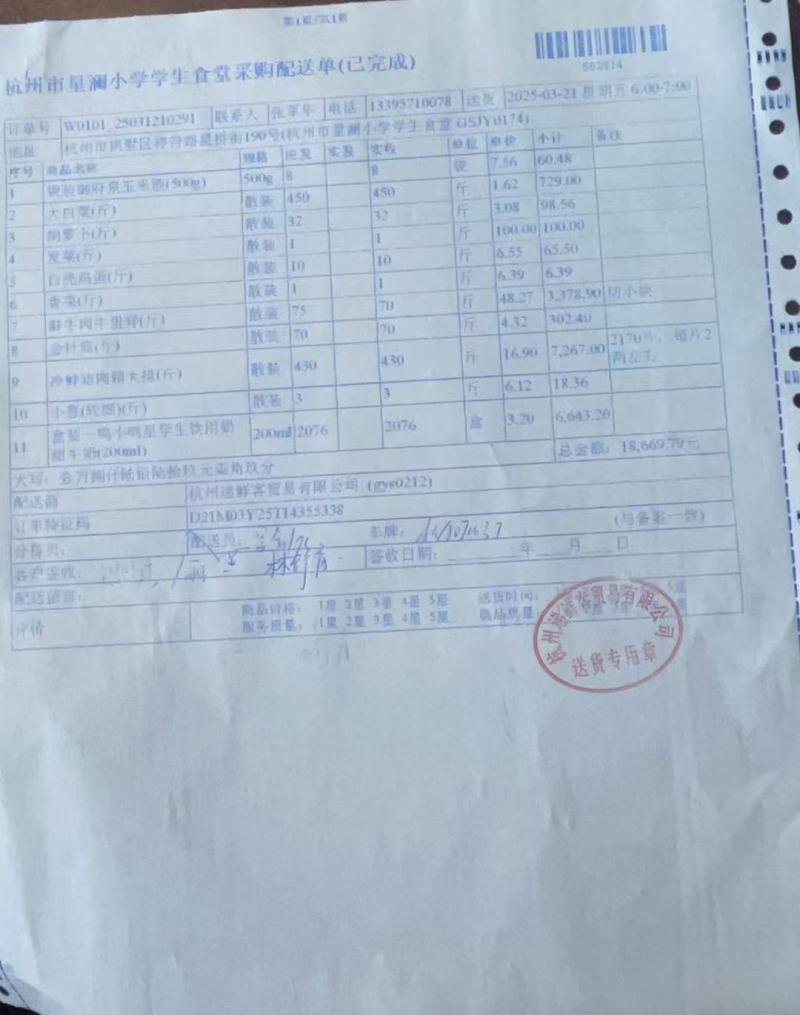 第1页/共1页
502614
杭州市星澜小学学生食堂采购配送单(已完成)
订单号 W0101_25031210291 联系人 张军华 电话 13395710078 送货 2025-03-21 星期五 6:00-7:00
地址 杭州市拱墅区祥符路星桥街190号(杭州市星澜小学学生食堂 GSJY0174)
序号 商品名称 规格 应发 实发 实收 单位 单价 小计 备注
1 袋装御府泉玉米渣(500g) 500g 8 8 袋 7.56 60.48
2 大白菜(斤) 散装 450 450 斤 1.62 729.00
3 胡萝卜(斤) 散装 32 32 斤 3.08 98.56
4 发菜(斤) 散装 1 1 斤 100.00 100.00
5 白壳鸡蛋(斤) 散装 10 10 斤 6.55 65.50
6 香菜(斤) 散装 1 1 斤 6.39 6.39
7 鲜牛肉牛里脊(斤) 散装 75 70 斤 48.27 3,378.90 切小块
8 金针菇(斤) 散装 70 70 斤 4.32 302.40
9 冷鲜猪肉精大排(斤) 散装 430 430 斤 16.90 7,267.00 2170片，
10 小葱(斤) 散装 3 3 斤 6.12 18.36
11 盒装一鸣小鸣星学生饮用奶甜牛奶(200ml) 200ml 2076 2076 盒 3.20 6,643.20
总金额：18,669.79元
大写：壹万捌仟陆佰陆拾玖元柒角玖分
配送商 杭州递鲜客贸易有限公司 (gys0212)
订单特征码 D21M03Y25T14355338
分拣员： 配送员： 车牌： (与备案一致)
客户签收： 签收日期： 年 月 日
配送留言：
评价 商品价格： 1星 2星 3星 4星 5星 送货时间： 5星
服务质量： 1星 2星 3星 4星 5星 商品质量：
杭州递鲜客贸易有限公司
送货专用章